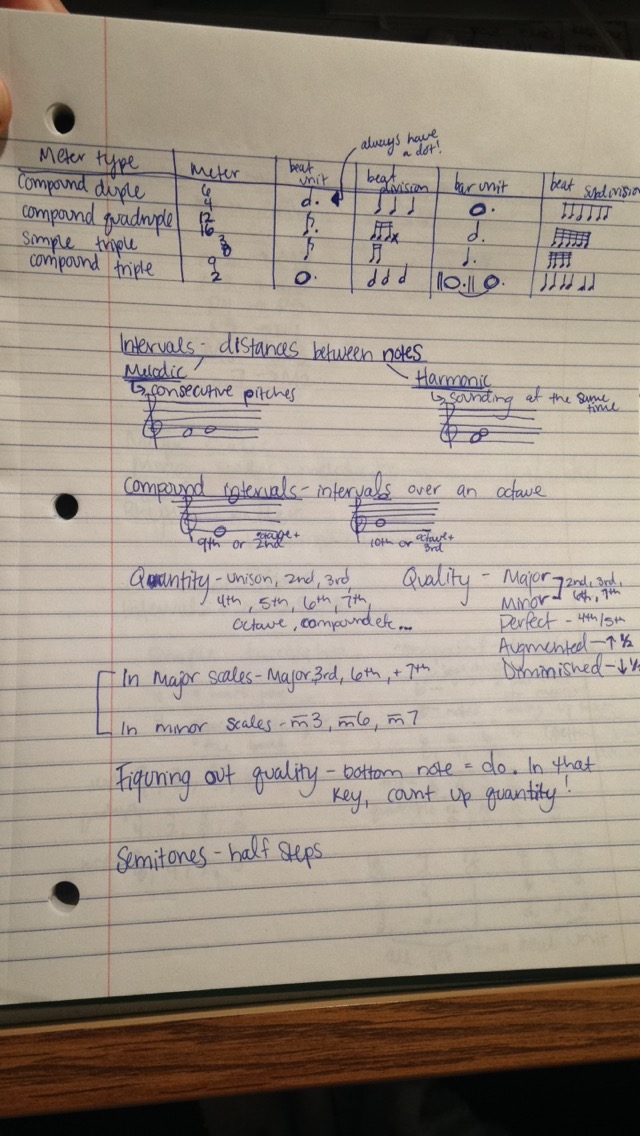 always have
a dot!
Meter type Meter beat unit beat division bar unit beat subdivision
compound duple 6 4
compound quadruple 12 16
simple triple 3 8
compound triple 9 2
Intervals - distances between notes
Melodic
↳ consecutive pitches
Harmonic
↳ sounding at the same time
Compound intervals - intervals over an octave
9th or octave + 2nd
10th or octave + 3rd
Quantity - unison, 2nd, 3rd,
4th, 5th, 6th, 7th,
octave, compound etc...
Quality - Major
Minor ] 2nd, 3rd, 6th, 7th
Perfect - 4th/5th
Augmented - ↑ 1/2
Diminished - ↓ 1/2
In Major scales - Major 3rd, 6th, + 7th
In minor scales - m̅3, m̅6, m̅7
Figuring out quality - bottom note = do. In that
key, count up quantity!
Semitones - half steps